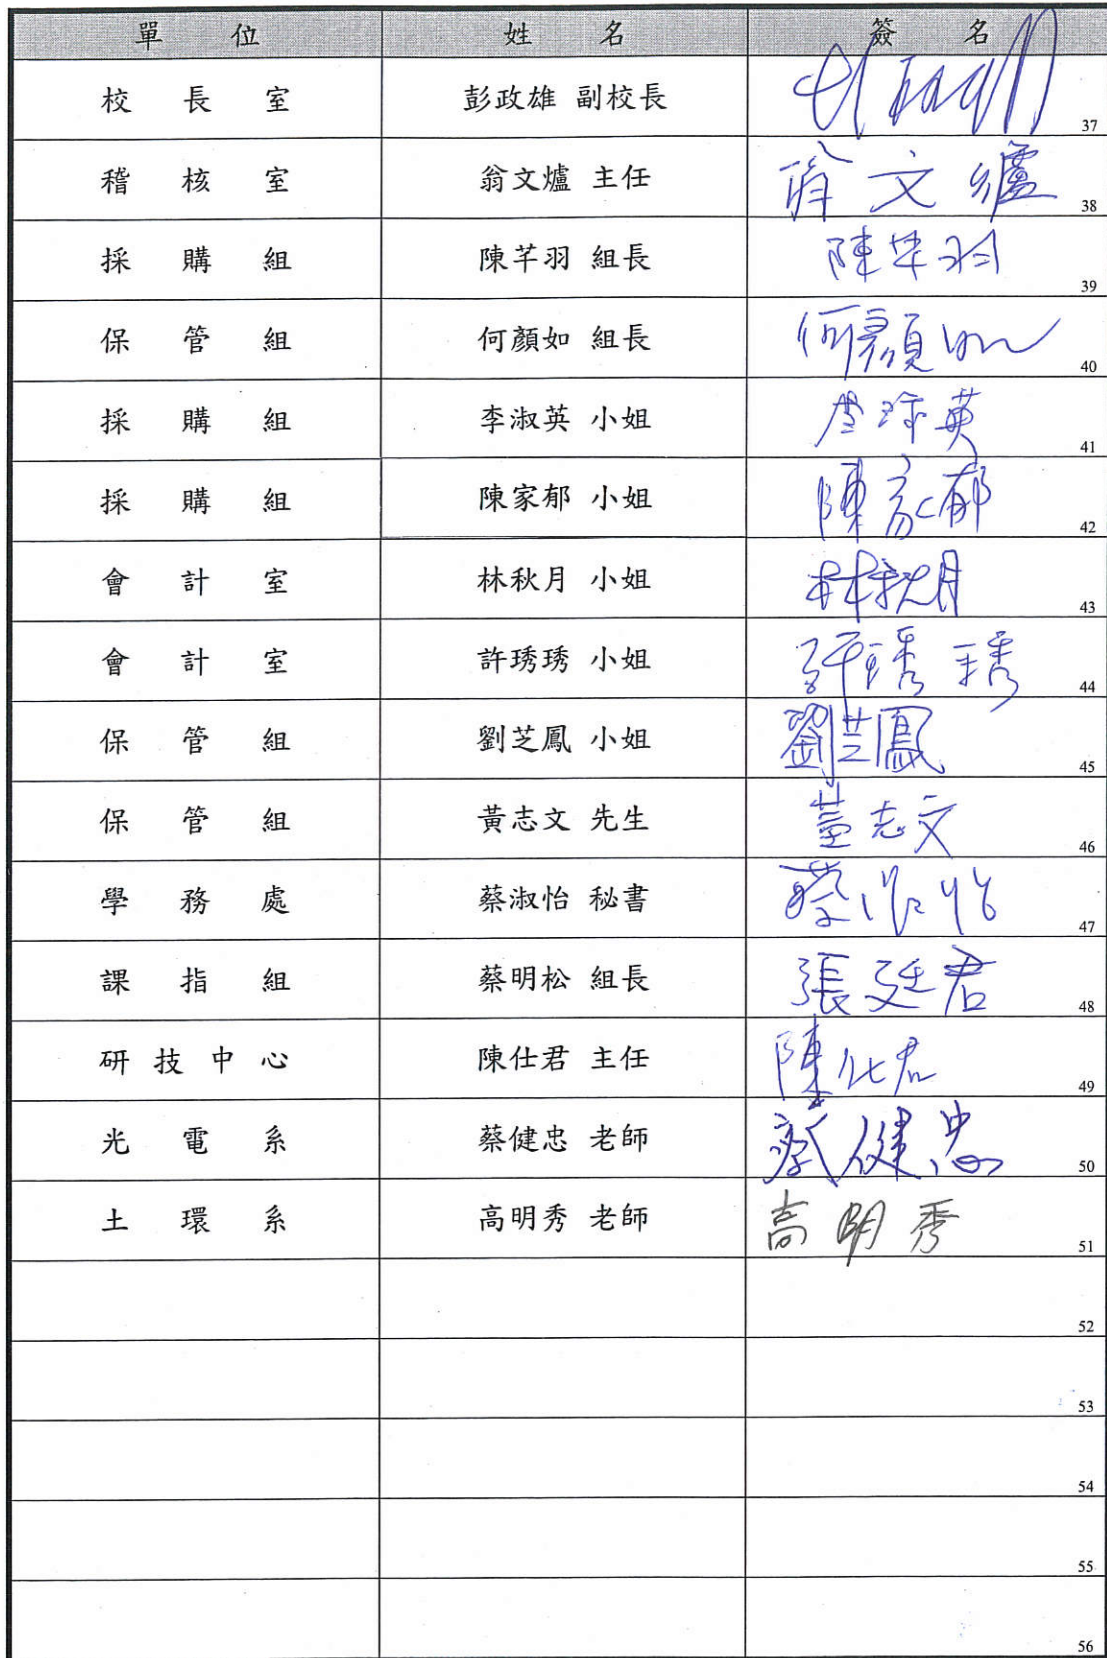 單位 姓名 簽名
校長室 彭政雄 副校長 37
稽核室 翁文爐 主任 翁文爐 38
採購組 陳芊羽 組長 陳芊羽 39
保管組 何顏如 組長 何顏如 40
採購組 李淑英 小姐 李淑英 41
採購組 陳家郁 小姐 陳家郁 42
會計室 林秋月 小姐 林秋月 43
會計室 許琇琇 小姐 許琇琇 44
保管組 劉芝鳳 小姐 劉芝鳳 45
保管組 黃志文 先生 黃志文 46
學務處 蔡淑怡 秘書 蔡淑怡 47
課指組 蔡明松 組長 張廷君 48
研技中心 陳仕君 主任 陳仕君 49
光電系 蔡健忠 老師 蔡健忠 50
土環系 高明秀 老師 高明秀 51
52
53
54
55
56